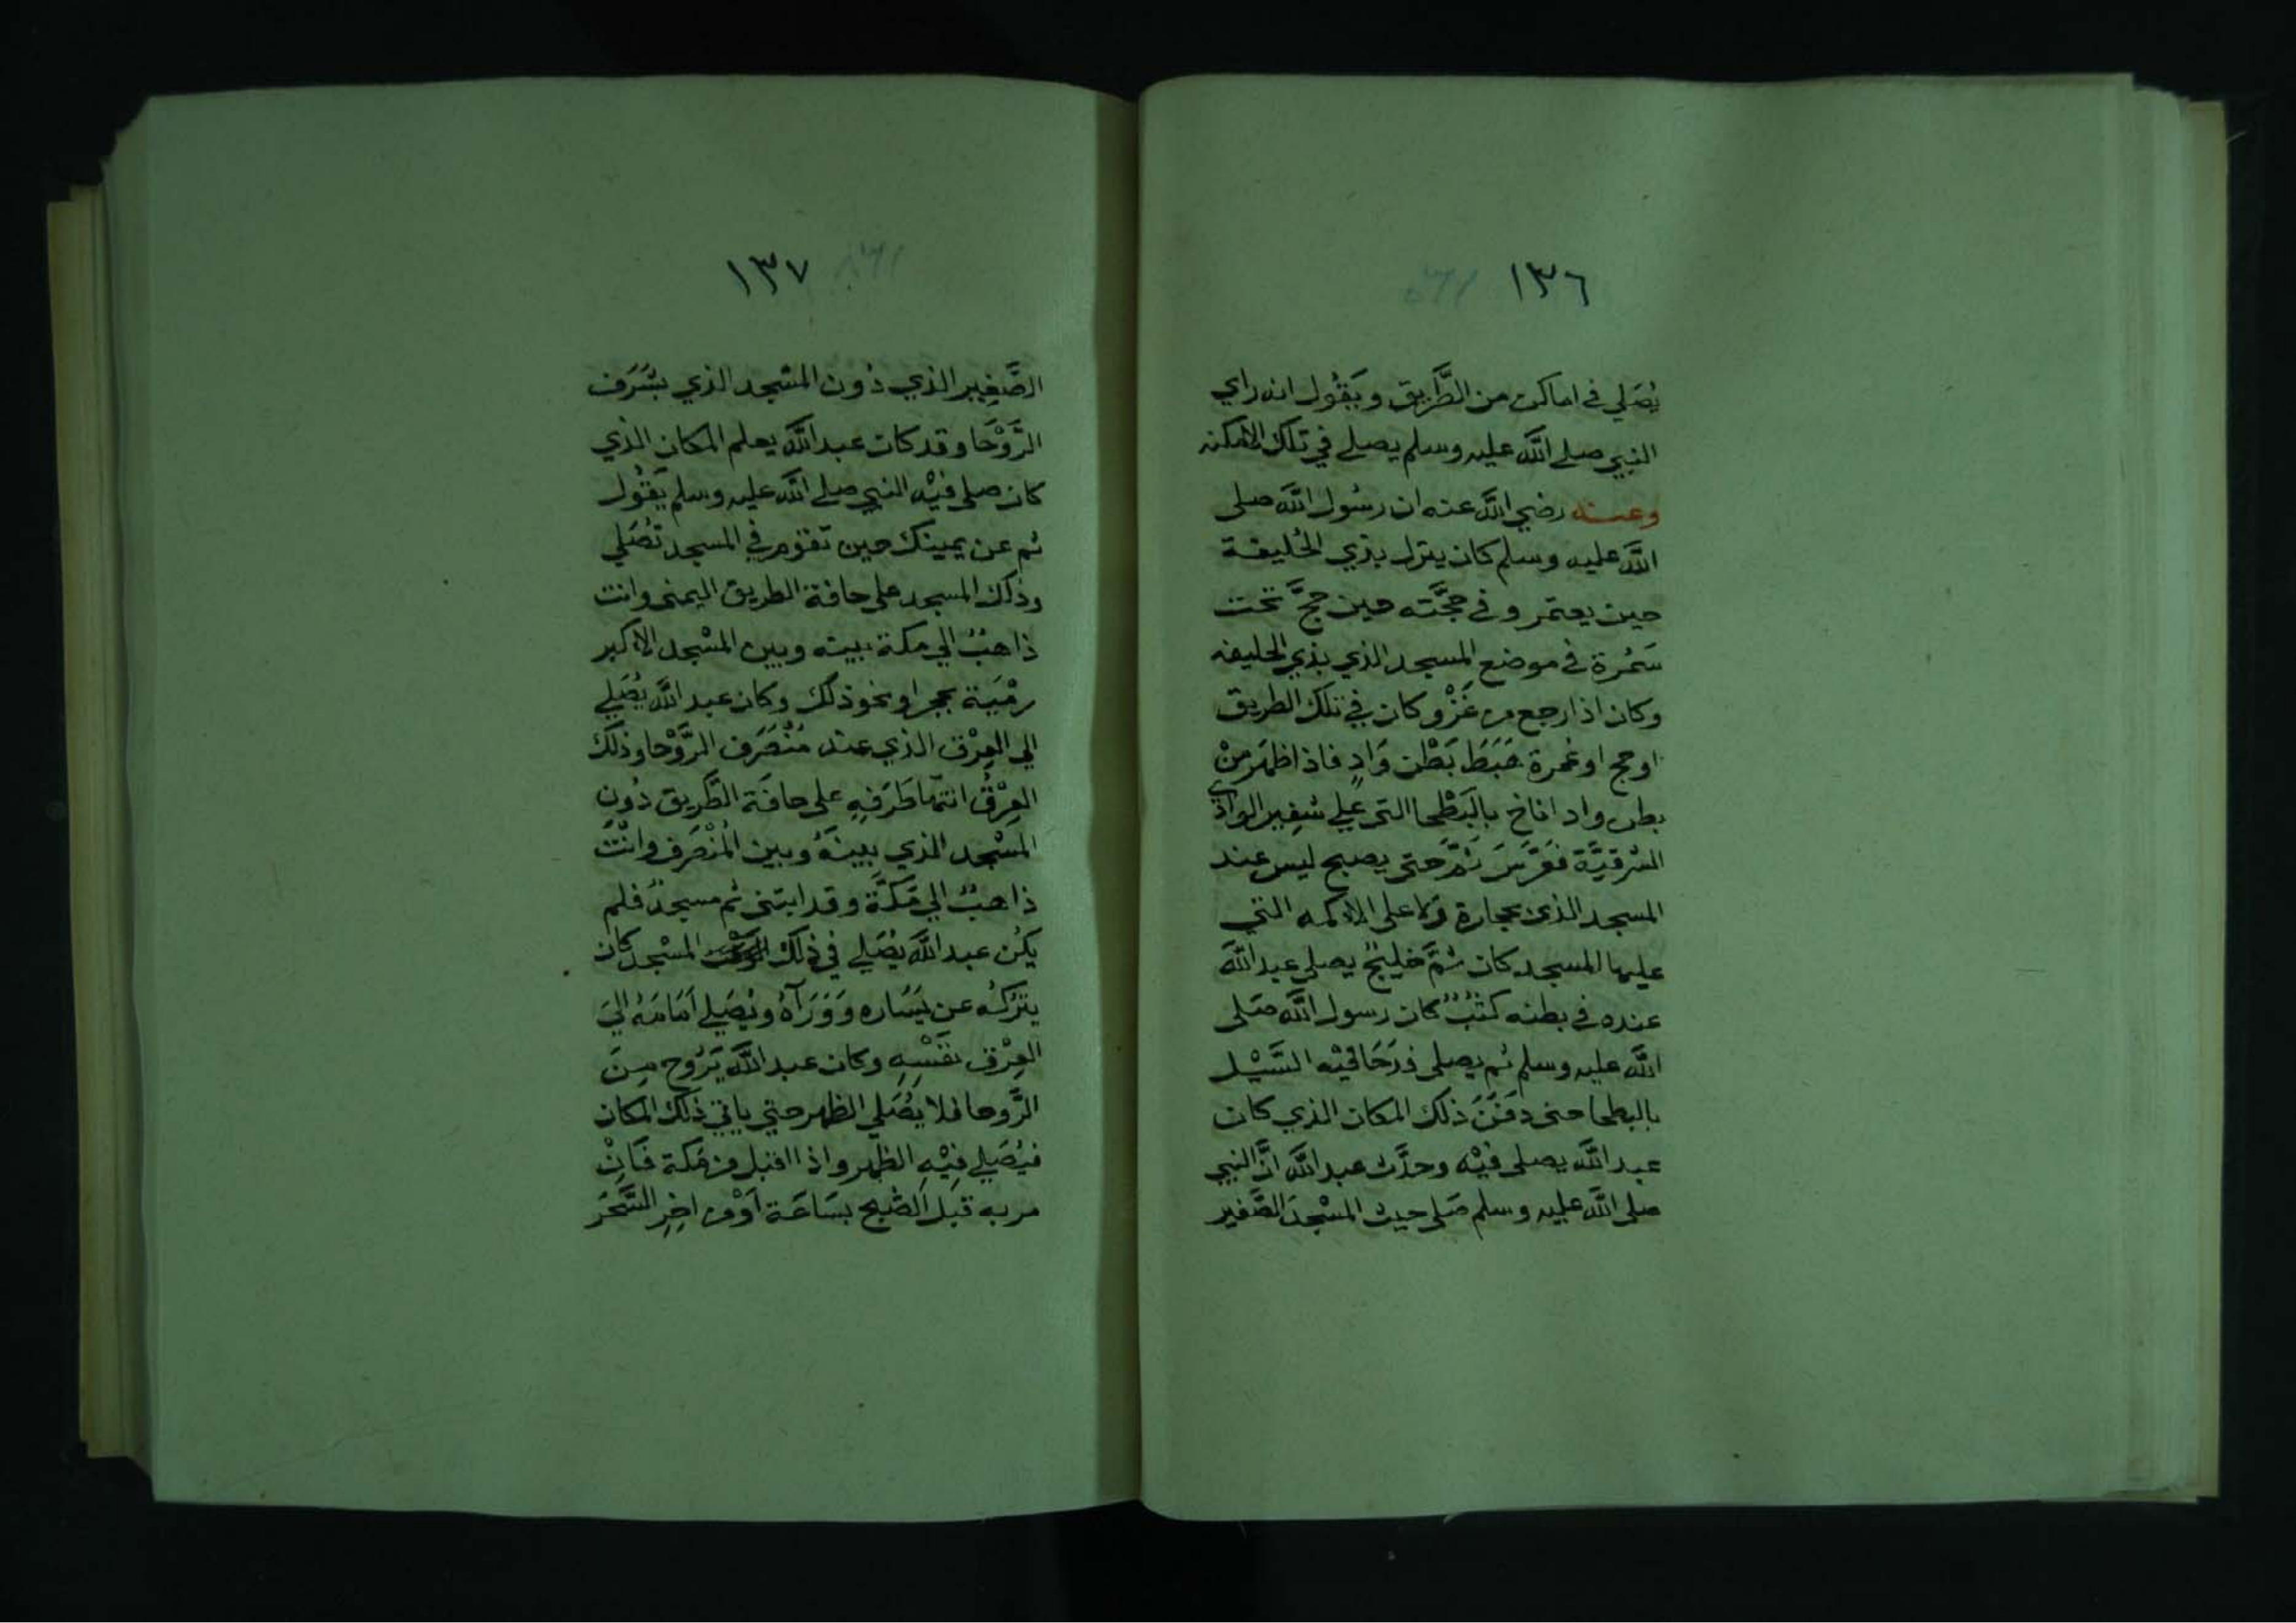 ١٣٦
يُصَلي في اماكن من الطَّريق ويَقُول انه راي
النبي صلى اللَّه عليه وسلم يصلي في تلك الامكنه
وعنه رضي اللَّه عنه ان رسُول اللَّه صلى
اللَّه عليه وسلم كان ينزل بذي الحُليفة
حين يعتمر وفي حجَّته حين حجَّ تحت
سَمُرة في موضع المسجد الذي بذي الحليفه
وكان اذا رجع من غَزْو كان في تلك الطريق
او حج او عُمرة هَبَطَ بَطْن وَادٍ فاذا ظهَر منْ
بطن واد اناخ بالبَطْحا التي علي شفِير الوادي
الشرقيَّة فعَرَّسَ ثمَّ حتى يصبح ليس عند
المسجد الذي بحجارة ولا على الاكمه التي
عليها المسجد كان ثمَّ خليجٌ يصلي عبد اللَّه
عنده في بطنه كثبٌ كان رسول اللَّه صَلى
اللَّه عليه وسلم ثم يصلي فدَحَا فيْه السَّيْل
بالبطحا حتى دفَنَ ذلك المكان الذي كان
عبد اللَّه يصلي فيْه وحدَّث عبد اللَّه انَّ النبي
صلى اللَّه عليه وسلم صَلى حيث المسْجدَ الصَّغير
١٣٧
الصَّغِير الذي دُون المسْجد الذي بشَرَف
الرَّوْحَا وقد كان عبد اللَّه يعلم المكان الذي
كان صلى فيْه النبي صلى اللَّه عليه وسلم يَقُول
ثم عن يمينك حين تقوم في المسجد تُصَلي
وذلك المسجد على حافة الطريق اليمنى وانت
ذاهبٌ الي مكة بينه وبين المسْجد الاكبر
رمْيَة بحجر او نحو ذلك وكان عبد اللَّه يُصَلي
الي العِرْق الذي عند مُنْصَرَف الرَّوْحا وذلك
العِرْقُ انتهَا طَرَفِهِ على حافَة الطَّريق دُون
المسْجد الذي بينهُ وبين المُنْصَرف وانْتَ
ذاهبٌ الي مَكَّة وقد ابتنى ثم مسجدٌ فلم
يكُن عبد اللَّه يُصَلي في ذلك المسْجد كان
يتْرُكُه عن يَسَاره وَوَرَآهُ ويُصَلي اَمَامَهُ اليَ
العِرْق نفْسِهِ وكان عبد اللَّه يَرُوح مِنَ
الرَّوحا فلا يُصَلي الظهر حتي ياتي ذلك المكان
فيُصَلي فيْهِ الظهر واذا اقبل من مَكة فَاِنْ
مر به قبْل الصُّبح بسَاعَة اَوْ من اخِرِ السَّحَر